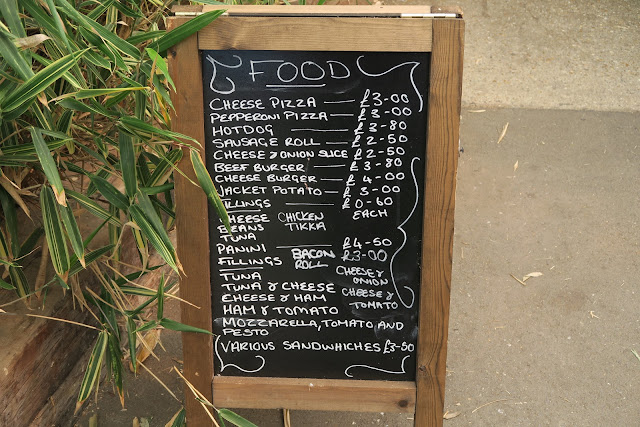 FOOD
CHEESE PIZZA — £3-00
PEPPERONI PIZZA — £3-00
HOTDOG — £3-80
SAUSAGE ROLL — £2-50
CHEESE & ONION SLICE £2-50
BEEF BURGER — £3-80
CHEESE BURGER — £4-00
JACKET POTATO — £3-00
FILLINGS — £0-60
CHEESE CHICKEN EACH
BEANS TIKKIA
TUNA
PANINI — £4-50
FILLINGS BACON ROLL £3-00
TUNA CHEESE & ONION
TUNA & CHEESE
CHEESE & HAM CHEESE & TOMATO
HAM & TOMATO
MOZZARELLA, TOMATO AND
PESTO
VARIOUS SANDWHICHES £3-50